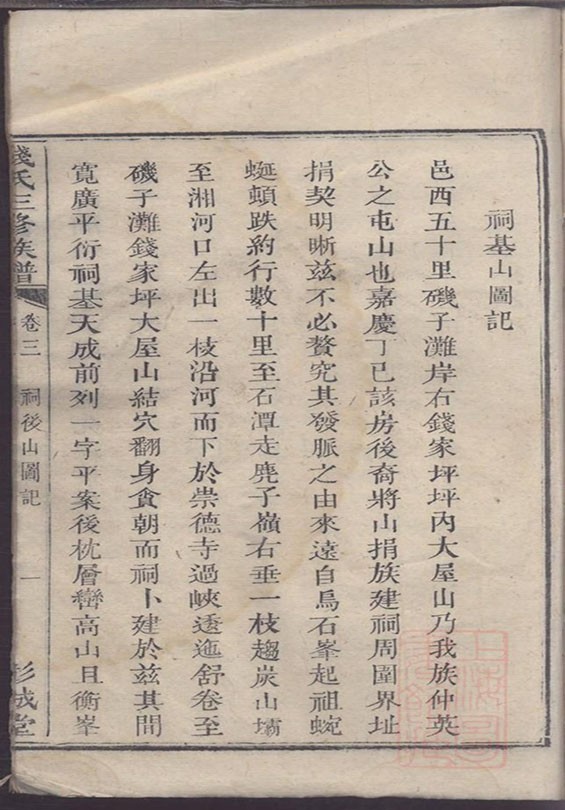 祠基山圖記
邑西五十里磯子灘岸右錢家坪坪內大屋山乃我族仲英
公之屯山也嘉慶丁巳該房後裔將山捐族建祠周圍界址
捐契明晰兹不必贅究其發脈之由來遠自烏石峯起祖蜿
蜒頓跌約行數十里至石潭走麂子嶺右垂一枝趨炭山壩
至湘河口左出一枝沿河而下於崇德寺過峽透迤舒卷至
磯子灘錢家坪大屋山結穴翻身貪朝而祠卜建於兹其間
寬廣平衍祠基天成前列一字平案後枕層巒高山且衡峯
錢氏三修族譜
卷三
祠後山圖記
一
彭城堂